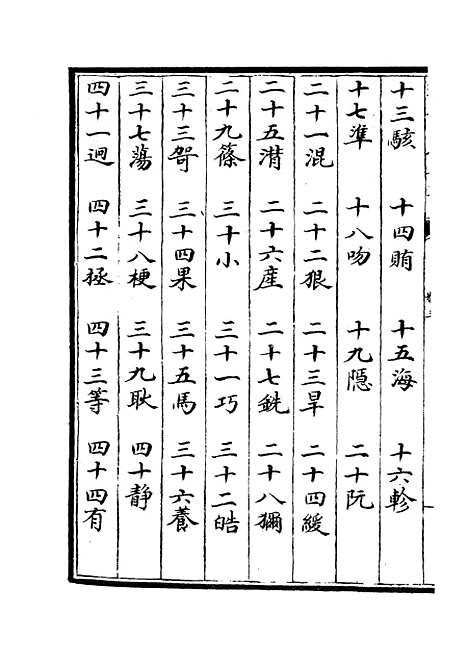 十三駭　十四賄　十五海　十六軫
十七準　十八吻　十九隠　二十阮
二十一混　二十二狠　二十三旱　二十四緩
二十五潸　二十六産　二十七銑　二十八獮
二十九篠　三十小　三十一巧　三十二皓
三十三哿　三十四果　三十五馬　三十六養
三十七蕩　三十八梗　三十九耿　四十静
四十一迥　四十二拯　四十三等　四十四有